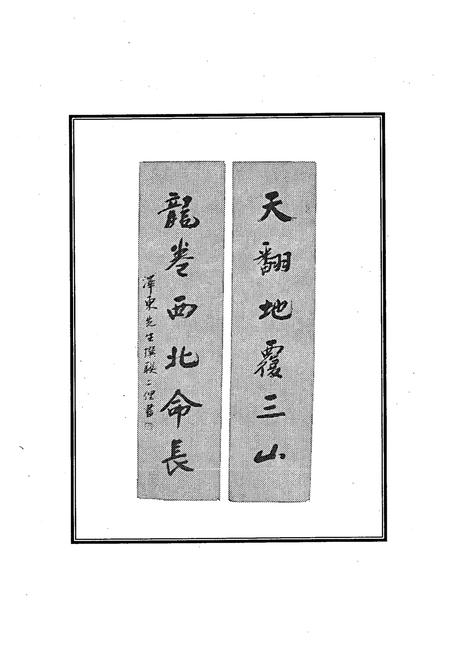 天翻地覆三山
龍卷西北命長
澤東先生撰联二俚書